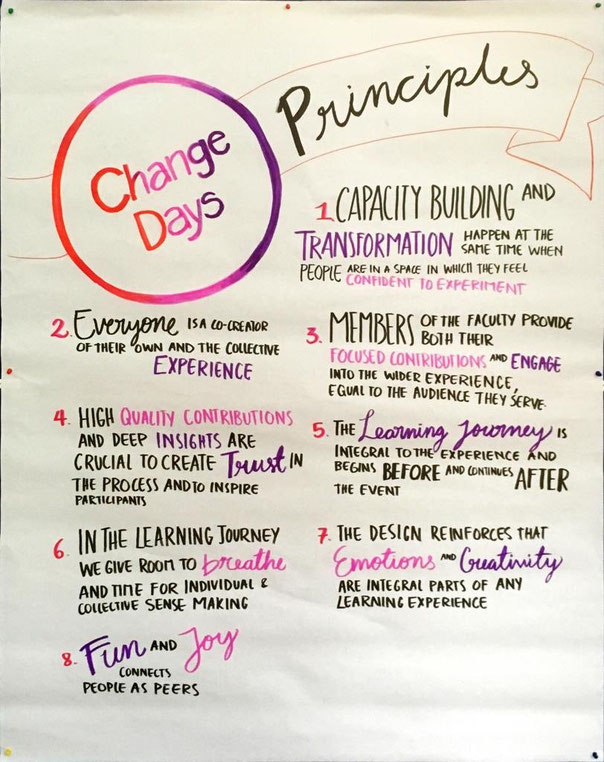 Change
Days
Principles
1. CAPACITY BUILDING AND
TRANSFORMATION HAPPEN AT THE
SAME TIME WHEN
PEOPLE ARE IN A SPACE IN WHICH THEY FEEL
CONFIDENT TO EXPERIMENT
2. Everyone IS A CO-CREATOR
OF THEIR OWN AND THE COLLECTIVE
EXPERIENCE
3. MEMBERS OF THE FACULTY PROVIDE
BOTH THEIR
FOCUSED CONTRIBUTIONS AND ENGAGE
INTO THE WIDER EXPERIENCE,
EQUAL TO THE AUDIENCE THEY SERVE.
4. HIGH QUALITY CONTRIBUTIONS
AND DEEP INSIGHTS ARE
CRUCIAL TO CREATE Trust IN
THE PROCESS AND TO INSPIRE
PARTICIPANTS
5. THE Learning Journey IS
INTEGRAL TO THE EXPERIENCE AND
BEGINS BEFORE AND CONTINUES AFTER
THE EVENT
6. IN THE LEARNING JOURNEY
WE GIVE ROOM TO breathe
AND TIME FOR INDIVIDUAL &
COLLECTIVE SENSE MAKING
7. THE DESIGN REINFORCES THAT
Emotions AND Creativity
ARE INTEGRAL PARTS OF ANY
LEARNING EXPERIENCE
8. Fun AND Joy
CONNECTS
PEOPLE AS PEERS